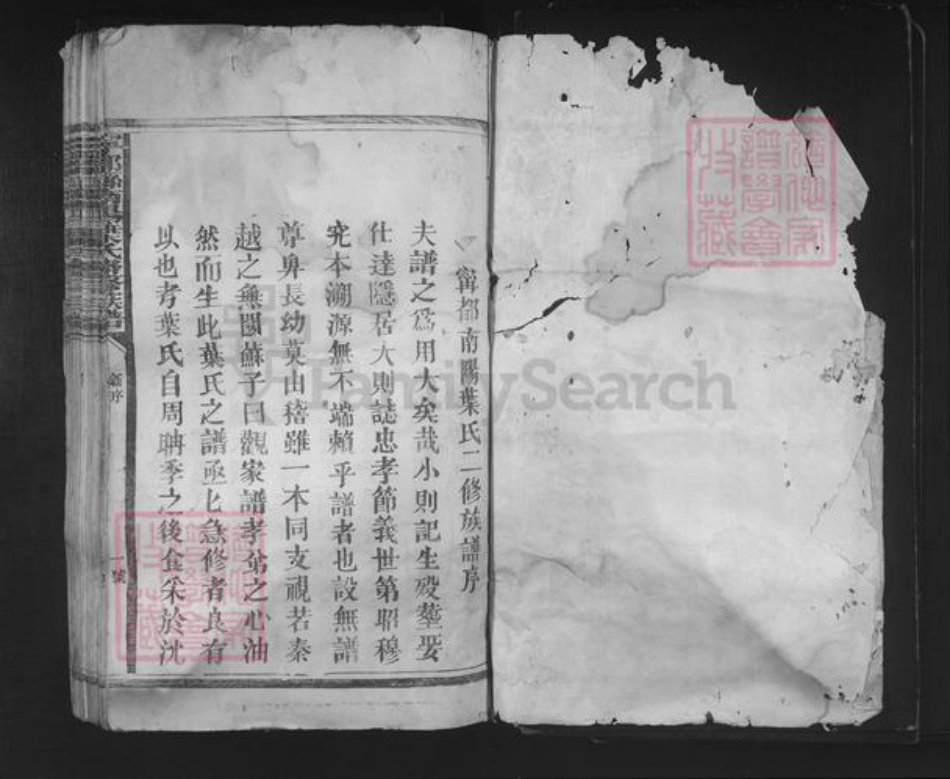 寗都南陽葉氏二修族譜序
夫譜之為用大矣哉小則記生歿塟娶
仕達隱居大則誌忠孝節義世第昭穆
究本溯源無不端賴乎譜者也設無譜
尊卑長幼莫由稽雖一本同支視若秦
越之無關蘇子曰觀家譜孝弟之心油
然而生此葉氏之譜亟亟急修者良有
以也考葉氏自周聃季之後食采於沈
序
號
FamilySearch